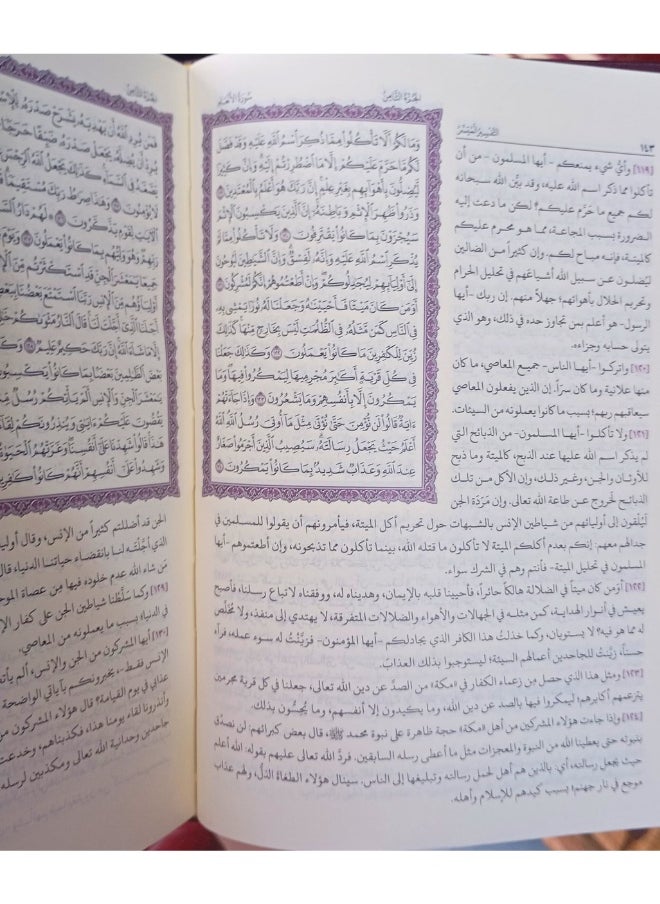 ١٤٣
التفسير الميسر
الجزء الثامن
سورة الأنعام
[١١٩] وأيُّ شيء يمنعكم -أيها المسلمون- من أن
تأكلوا مما ذكر اسم الله عليه، وقد بيَّن الله سبحانه
لكم جميع ما حَرَّم عليكم؟ لكن ما دعت إليه
الضرورة بسبب المجاعة، مما هو محرم عليكم
كالميتة، فإنه مباح لكم. وإن كثيراً من الضالين
ليُضلون عن سبيل الله أشياعَهم في تحليل الحرام
وتحريم الحلال بأهوائهم؛ جهلاً منهم. إن ربك -أيها
الرسول- هو أعلم بمن تجاوز حده في ذلك، وهو الذي
يتولى حسابه وجزاءه.
[١٢٠] واتركوا -أيها الناس- جميع المعاصي، ما كان
منها علانية وما كان سرّاً. إن الذين يفعلون المعاصي
سيعاقبهم ربهم؛ بسبب ما كانوا يعملونه من السيئات.
[١٢١] ولا تأكلوا -أيها المسلمون- من الذبائح التي
لم يذكر اسم الله عليها عند الذبح، كالميتة وما ذبح
للأوثان والجن، وغير ذلك، وإن الأكل من تلك
الذبائح لخروج عن طاعة الله تعالى. وإن مَرَدَة الجن
ليُلقون إلى أوليائهم من شياطين الإنس بالشبهات حول تحريم أكل الميتة، فيأمرونهم أن يقولوا للمسلمين في
جدالهم معهم: إنكم بعدم أكلكم الميتة لا تأكلون ما قتله الله، بينما تأكلون مما تذبحونه، وإن أطعتموهم -أيها
المسلمون- في تحليل الميتة- فأنتم وهم في الشرك سواء.
[١٢٢] أوَمن كان ميتاً في الضلالة هالكاً حائراً، فأحيينا قلبه بالإيمان، وهديناه له، ووفقناه لاتباع رسلنا، فأصبح
يعيش في أنوار الهداية، كمن مثله في الجهالات والأهواء والضلالات المتفرقة، لا يهتدي إلى منفذ، ولا مخلص
له مما هو فيه؟ لا يستويان، وكما خذلتُ هذا الكافر الذي يجادلكم -أيها المؤمنون- فزيَّنْتُ له سوء عمله، فرآه
حسناً، زيَّنتُ للجاحدين أعمالهم السيئة؛ ليستوجبوا بذلك العذاب.
[١٢٣] ومثل هذا الذي حصل مِن زعماء الكفار في «مكة» من الصدِّ عن دين الله تعالى، جعلنا في كل قرية مجرمين
يتزعمهم أكابرهم؛ ليمكروا فيها بالصد عن دين الله، وما يكيدون إلا أنفسهم، وما يُحِسُّون بذلك.
[١٢٤] وإذا جاءت هؤلاء المشركين من أهل «مكة» حجة ظاهرة على نبوة محمد ﷺ، قال بعض كبرائهم: لن نصدِّق
بنبوته حتى يعطينا الله من النبوة والمعجزات مثل ما أعطى رسله السابقين. فردَّ الله تعالى عليهم بقوله: الله أعلم
حيث يجعل رسالته، أي: بالذين هم أهل لحمل رسالته وتبليغها إلى الناس. سينال هؤلاء الطغاة الذلُّ، ولهم عذاب
موجع في نار جهنم؛ بسبب كيدهم للإسلام وأهله.
وَمَا لَكُمْ أَلَّا تَأْكُلُوا۟ مِمَّا ذُكِرَ ٱسْمُ ٱللَّهِ عَلَيْهِ وَقَدْ فَصَّلَ
لَكُم مَّا حَرَّمَ عَلَيْكُمْ إِلَّا مَا ٱضْطُرِرْتُمْ إِلَيْهِ وَإِنَّ كَثِيرًا
لَّيُضِلُّونَ بِأَهْوَآئِهِم بِغَيْرِ عِلْمٍ إِنَّ رَبَّكَ هُوَ أَعْلَمُ بِٱلْمُعْتَدِينَ
١١٩ وَذَرُوا۟ ظَٰهِرَ ٱلْإِثْمِ وَبَاطِنَهُۥٓ إِنَّ ٱلَّذِينَ يَكْسِبُونَ ٱلْإِثْمَ
سَيُجْزَوْنَ بِمَا كَانُوا۟ يَقْتَرِفُونَ ١٢٠ وَلَا تَأْكُلُوا۟ مِمَّا لَمْ
يُذْكَرِ ٱسْمُ ٱللَّهِ عَلَيْهِ وَإِنَّهُۥ لَفِسْقٌ وَإِنَّ ٱلشَّيَٰطِينَ لَيُوحُونَ
إِلَىٰٓ أَوْلِيَآئِهِمْ لِيُجَٰدِلُوكُمْ وَإِنْ أَطَعْتُمُوهُمْ إِنَّكُمْ لَمُشْرِكُونَ ١٢١
أَوَمَن كَانَ مَيْتًا فَأَحْيَيْنَٰهُ وَجَعَلْنَا لَهُۥ نُورًا يَمْشِى بِهِۦ
فِى ٱلنَّاسِ كَمَن مَّثَلُهُۥ فِى ٱلظُّلُمَٰتِ لَيْسَ بِخَارِجٍ مِّنْهَا كَذَٰلِكَ
زُيِّنَ لِلْكَٰفِرِينَ مَا كَانُوا۟ يَعْمَلُونَ ١٢٢ وَكَذَٰلِكَ جَعَلْنَا
فِى كُلِّ قَرْيَةٍ أَكَٰبِرَ مُجْرِمِيهَا لِيَمْكُرُوا۟ فِيهَا وَمَا
يَمْكُرُونَ إِلَّا بِأَنفُسِهِمْ وَمَا يَشْعُرُونَ ١٢٣ وَإِذَا جَآءَتْهُمْ
ءَايَةٌ قَالُوا۟ لَن نُّؤْمِنَ حَتَّىٰ نُؤْتَىٰ مِثْلَ مَآ أُوتِىَ رُسُلُ ٱللَّهِ ٱللَّهُ
أَعْلَمُ حَيْثُ يَجْعَلُ رِسَالَتَهُۥ سَيُصِيبُ ٱلَّذِينَ أَجْرَمُوا۟ صَغَارٌ
عِندَ ٱللَّهِ وَعَذَابٌ شَدِيدٌۢ بِمَا كَانُوا۟ يَمْكُرُونَ ١٢٤
الجزء الثامن
فَمَن يُرِدِ ٱللَّهُ أَن يَهْدِيَهُۥ يَشْرَحْ صَدْرَهُۥ لِلْإِسْلَٰمِ
يُرِدْ أَن يُضِلَّهُۥ يَجْعَلْ صَدْرَهُۥ ضَيِّقًا حَرَجًا
يَصَّعَّدُ فِى ٱلسَّمَآءِ كَذَٰلِكَ يَجْعَلُ ٱللَّهُ ٱلرِّجْسَ
لَا يُؤْمِنُونَ ١٢٥ وَهَٰذَا صِرَٰطُ رَبِّكَ مُسْتَقِيمًا
ٱلْءَايَٰتِ لِقَوْمٍ يَذَّكَّرُونَ ١٢٦ لَهُمْ دَارُ
رَبِّهِمْ وَهُوَ وَلِيُّهُم بِمَا كَانُوا۟ يَعْمَلُونَ ١٢٧ وَيَوْمَ
جَمِيعًا يَٰمَعْشَرَ ٱلْجِنِّ قَدِ ٱسْتَكْثَرْتُم مِّنَ ٱلْإِنسِ
أَوْلِيَآؤُهُم مِّنَ ٱلْإِنسِ رَبَّنَا ٱسْتَمْتَعَ بَعْضُنَا
أَجَلَنَا ٱلَّذِىٓ أَجَّلْتَ لَنَا قَالَ ٱلنَّارُ مَثْوَىٰكُمْ
إِلَّا مَا شَآءَ ٱللَّهُ إِنَّ رَبَّكَ حَكِيمٌ عَلِيمٌ ١٢٨
بَعْضَ ٱلظَّٰلِمِينَ بَعْضًۢا بِمَا كَانُوا۟ يَكْسِبُونَ
يَٰمَعْشَرَ ٱلْجِنِّ وَٱلْإِنسِ أَلَمْ يَأْتِكُمْ رُسُلٌ
يَقُصُّونَ عَلَيْكُمْ ءَايَٰتِى وَيُنذِرُونَكُمْ لِقَآءَ
هَٰذَا قَالُوا۟ شَهِدْنَا عَلَىٰٓ أَنفُسِنَا وَغَرَّتْهُمُ ٱلْحَيَوٰةُ
وَشَهِدُوا۟ عَلَىٰٓ أَنفُسِهِمْ أَنَّهُمْ كَانُوا۟
الجن قد أضللتم كثيراً من الإنس، وقال
الذي أجَّلْتَه لنا بانقضاء حياتنا الدنيا، قال
مَن شاء الله عدم خلوده فيها مِن عصاة
[١٢٩] وكما سَلَّطْنا شياطين الجن على كفار
في الدنيا؛ بسبب ما يعملونه من المعاصي.
[١٣٠] أيها المشركون من الجن والإنس، ألم
الإنس فقط-، يخبرونكم بآياتي الواضحة
عذابي في يوم القيامة؟ قال هؤلاء المشركون
وأنذرونا لقاء يومنا هذا، فكذبناهم، وخدعت
جاحدين وحدانية الله تعالى ومكذبين لرسله